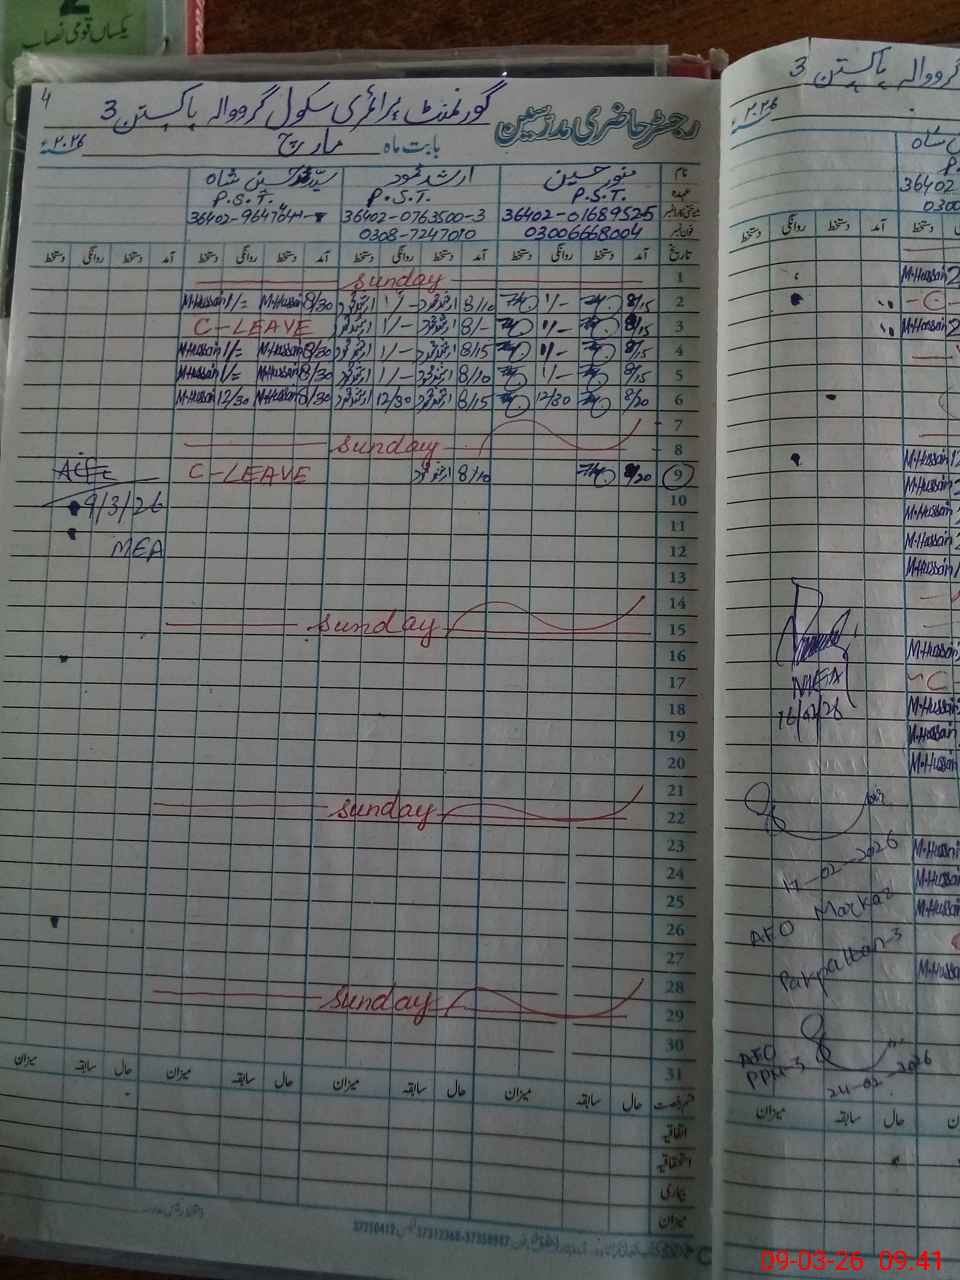 یکساں قومی نصاب
4
گورنمنٹ پرائمری سکول گرووالہ پاکپتن 3
رجسٹر حاضری مدرسین
بابت ماہ مارچ ۲۰۲۶ء
نام منور حسین ارشد محمود سید محمد حسنین شاہ
عہدہ P.S.T. P.S.T. P.S.T.
36402-0763500-3
03006668004 0308-7247010
تاریخ آمد دستخط روانگی دستخط آمد دستخط روانگی دستخط آمد دستخط روانگی دستخط آمد دستخط روانگی دستخط
1 Sunday
2 8/15 1/- 8/10 ارشد محمود 1/- ارشد محمود 8/30 M.Hussain 1/= M.Hussain
3 8/15 1/- 8/- ارشد محمود 1/- ارشد محمود C-LEAVE
4 8/15 1/- 8/15 ارشد محمود 1/- ارشد محمود 8/30 M.Hussain 1/= M.Hussain
5 8/15 1/- 8/10 ارشد محمود 1/- ارشد محمود 8/30 M.Hussain 1/= M.Hussain
6 8/20 12/30 8/15 ارشد محمود 12/30 ارشد محمود 8/30 M.Hussain 12/30 M.Hussain
7
8 Sunday
9 8/20 8/10 ارشد محمود C-LEAVE
10 9/3/26
11
12 MEA
13
14
15 Sunday
16
17
18
19
20
21
22 Sunday
23
24
25
26
27
28
29 Sunday
30
31
حال سابقہ میزان حال سابقہ میزان حال سابقہ میزان حال سابقہ میزان
اتفاقیہ
استحقاقیہ
بیماری
میزان
گرووالہ پاکپتن 3
۲۰۲۶ء
36402
0300
دستخط روانگی دستخط آمد
M.Hussain
-C-
M.Hussain
M.Hussain
M.Hussain
M.Hussain
M.Hussain
M.Hussain
M.Hussain
MEA
C
16/02/26
M.Hussain
M.Hussain
M.Hussain
17-02-2026
M.Hussain
M.Hussain
M.Hussain
AEO Markaz
Pakpattan-3
M.Hussain
AEO
PPN-3
24-02-2026
میزان سابقہ حال
09-03-26 09:41